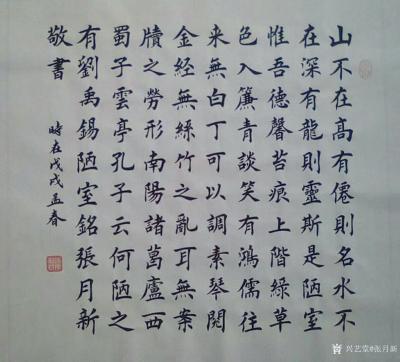 山不在高有僊則名水不
在深有龍則靈斯是陋室
惟吾德馨苔痕上階綠草
色入簾青談笑有鴻儒往
来無白丁可以調素琴閱
金経無絲竹之亂耳無案
牘之勞形南陽諸葛盧西
蜀子雲亭孔子云何陋之
有劉禹錫陋室銘張月新
敬書
時在戊戌孟春
兴艺堂@张月新